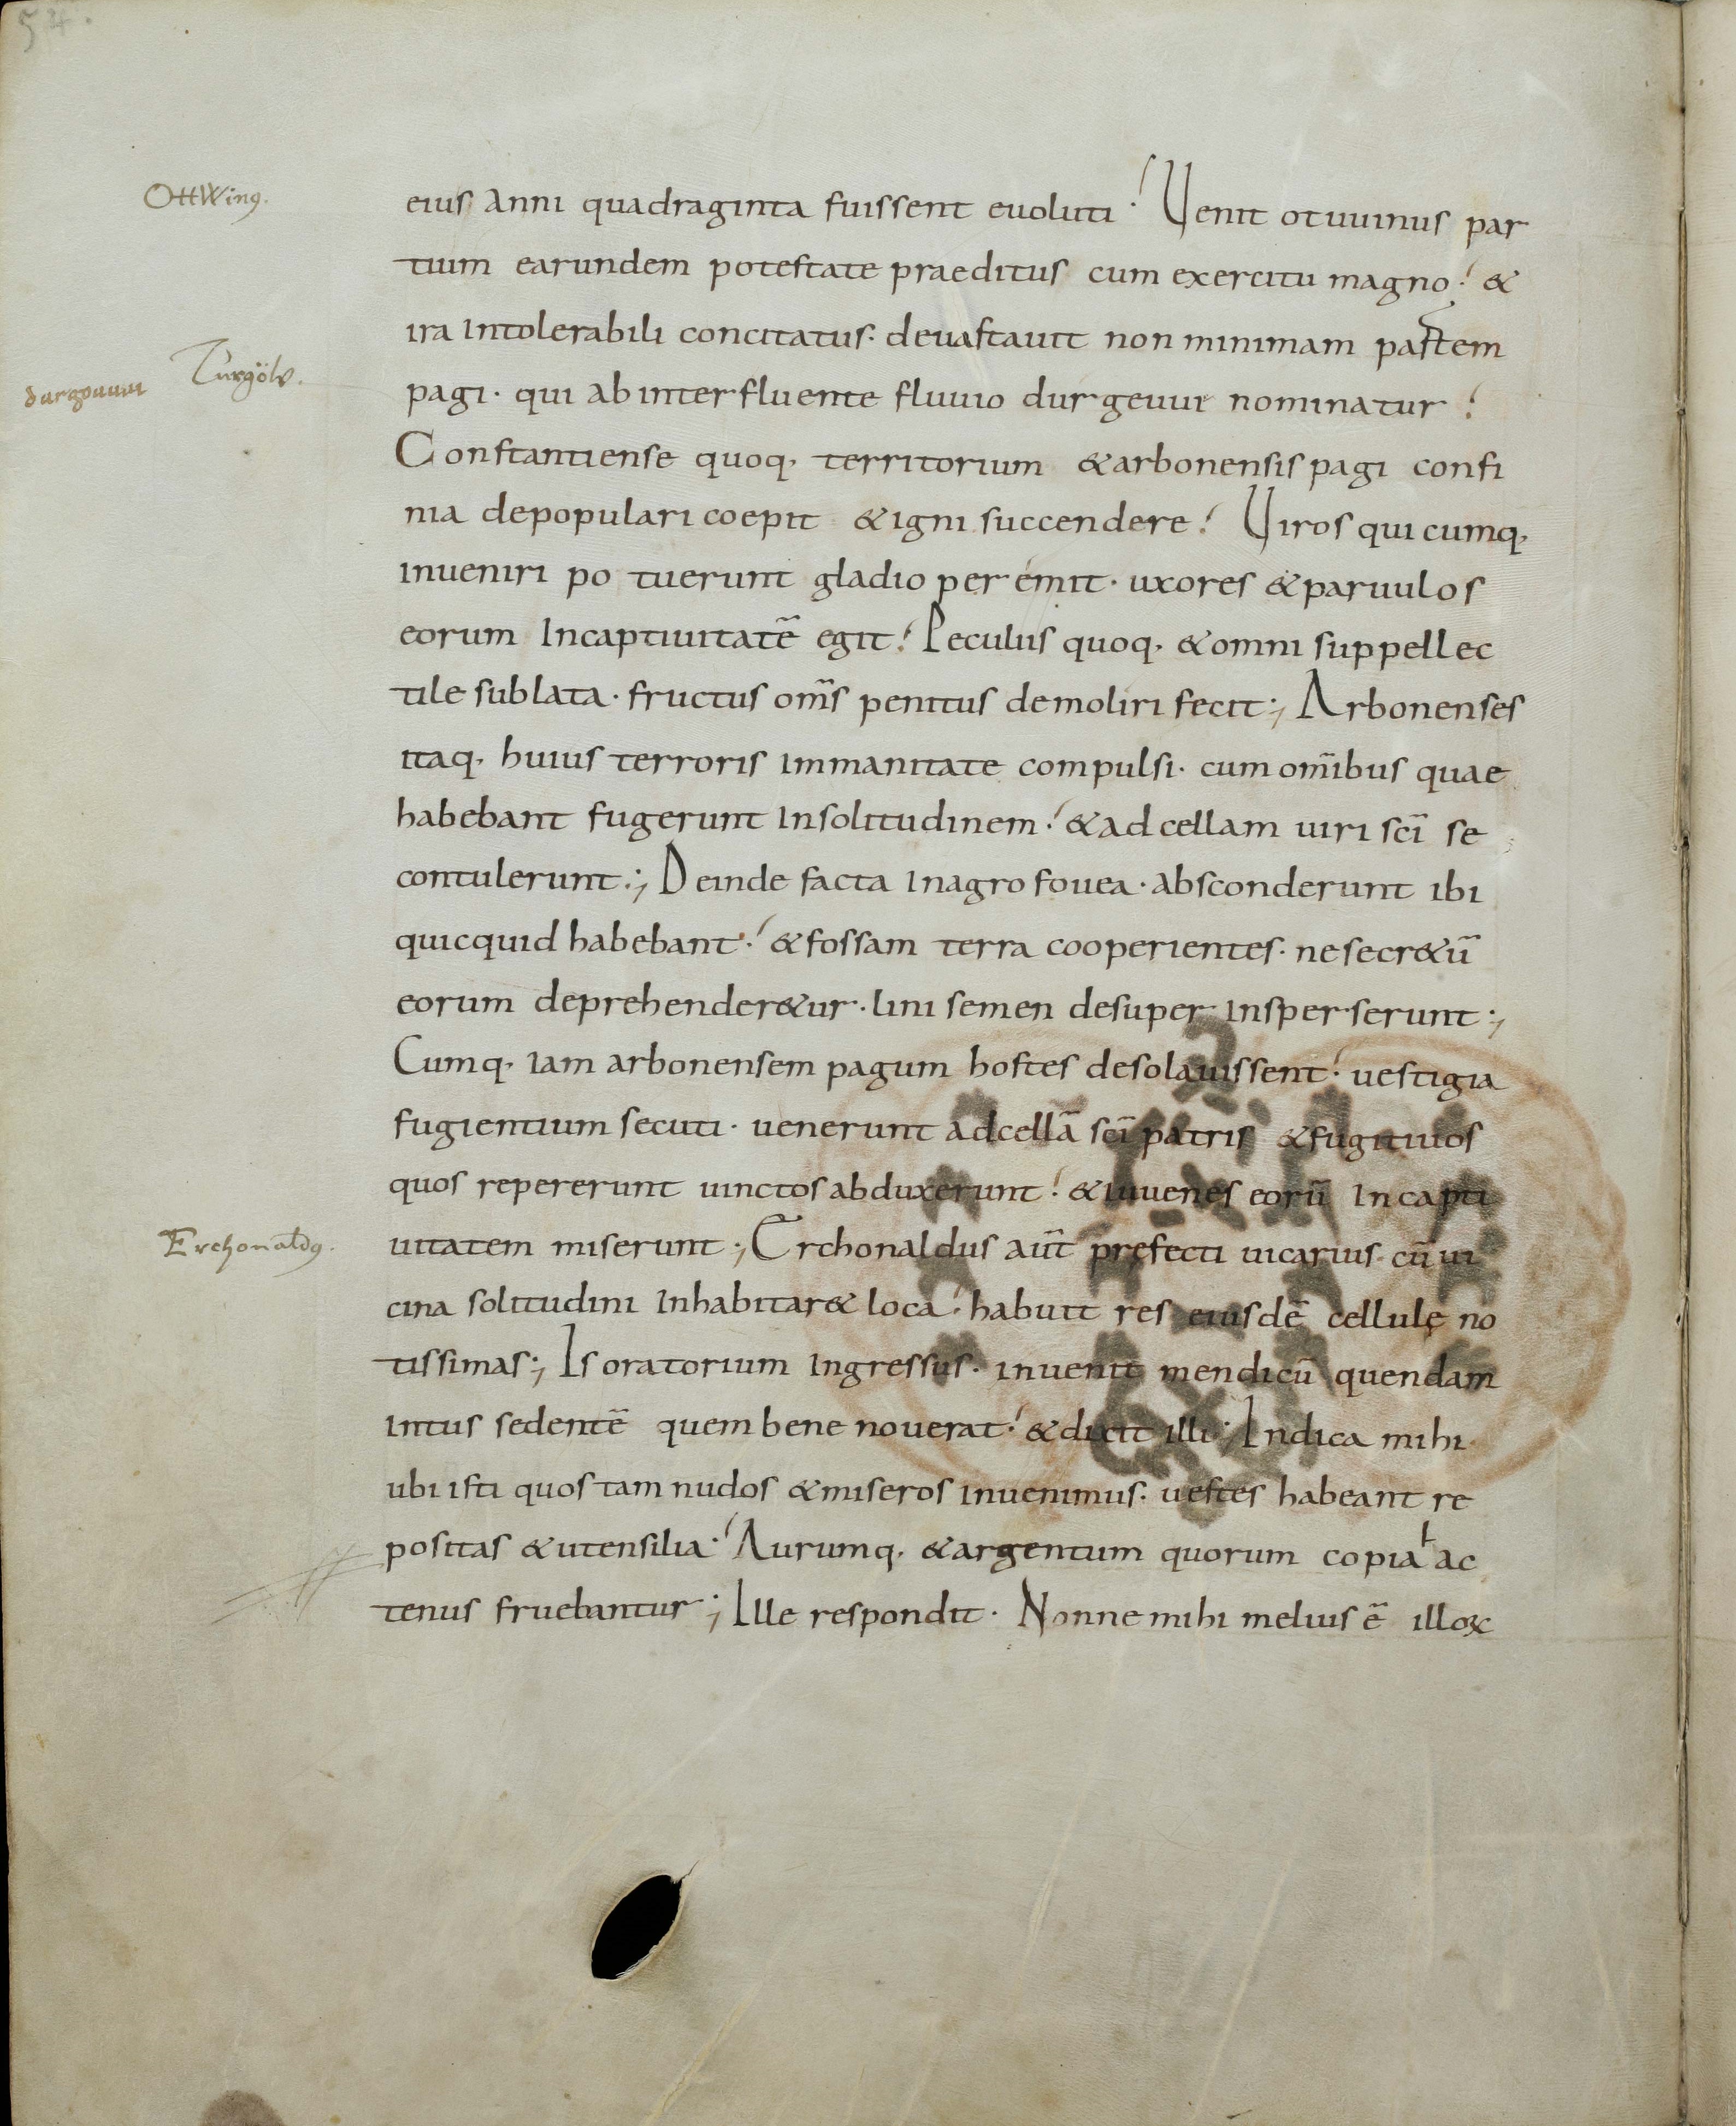 54.
OttWinꝰ.
eius anni quadraginta fuissent euoluti. Uenit otuuinus par
tium earundem potestate praeditus cum exercitu magno. &
ira intolerabili concitatus. deuastauit non minimam partem
Turgöw.
durgouuui
pagi. qui ab interfluente fluuio durgeuui nominatur.
Constantiense quoq. territorium & arbonensis pagi confi
nia depopulari coepit & igni succendere. Uiros qui cumq.
inueniri potuerunt gladio peremit. uxores & paruulos
eorum in captiuitatē egit. Peculiis quoq. & omni suppellec
tile sublata. fructus om̄s penitus demoliri fecit; Arbonenses
itaq. huius terroris immanitate compulsi. cum om̄ibus quae
habebant fugerunt in solitudinem. & ad cellam uiri sc̄i se
contulerunt; Deinde facta in agro fouea. absconderunt ibi
quicquid habebant. & fossam terra cooperientes. ne secr&ū
eorum deprehender&ur. lini semen desuper insperserunt;
Cumq. iam arbonensem pagum hostes desolauissent. uestigia
fugientium secuti. uenerunt ad cellā sc̄i patris & fugitiuos
quos repererunt uinctos abduxerunt. & iuuenes eorū in capti
Erchonaldꝰ.
uitatem miserunt; Erchonaldus aūt prefecti uicarius. cū ui
cina solitudini inhabitar& loca. habuit res eiusdē cellulę no
tissimas; Is oratorium ingressus. inuenit mendicū quendam
intus sedentē quem bene nouerat. & dixit illi; Indica mihi
ubi isti quos tam nudos & miseros inuenimus. uestes habeant re
positas & utensilia. Aurumq. & argentum quorum copia hac
tenus fruebantur; Ille respondit. Nonne mihi melius ē illoꝝ